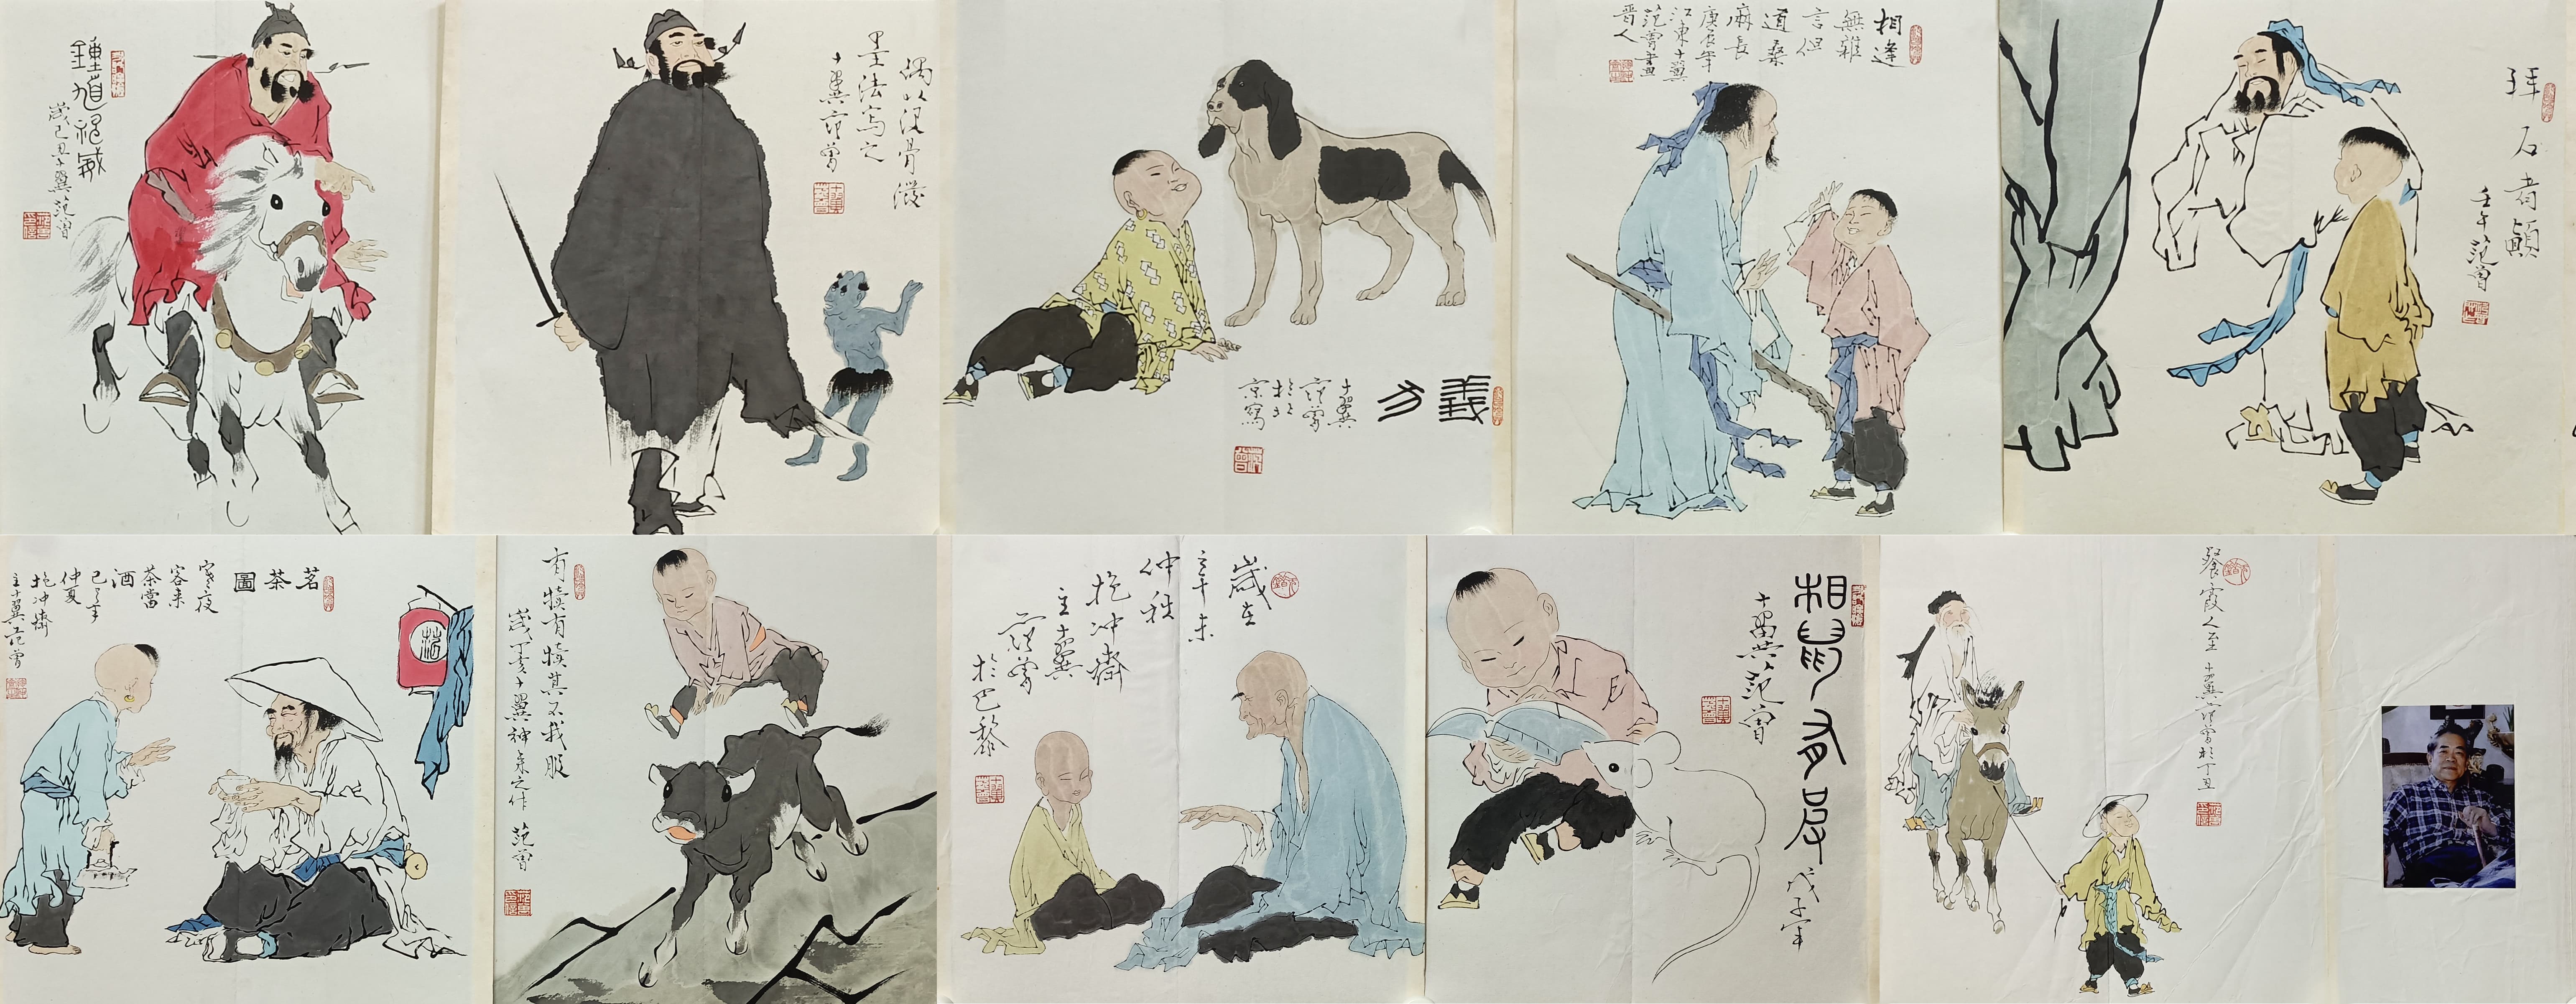 鍾馗祀威
歲己丑十翼范曾
偶以沒骨潑
墨法寫之
十翼范曾
義方
十翼
范曾
於北
京寫
相逢
無雜
言但
道桑
麻長
庚辰年
江東十翼
范曾畫
晋人
拜石者顚
壬午范曾
茗茶圖
寒夜
客来
茶當
酒
己巳年
仲夏
抱冲齋
主十翼范曾
有犢有犢其不我服
歲丁亥十翼神來之作 范曾
歲在
辛未
仲秋
抱冲齋
主十翼
范曾
於巴黎
相鼠有居
戊子年
十翼范曾
餐霞人至 十翼范曾於丁丑
范